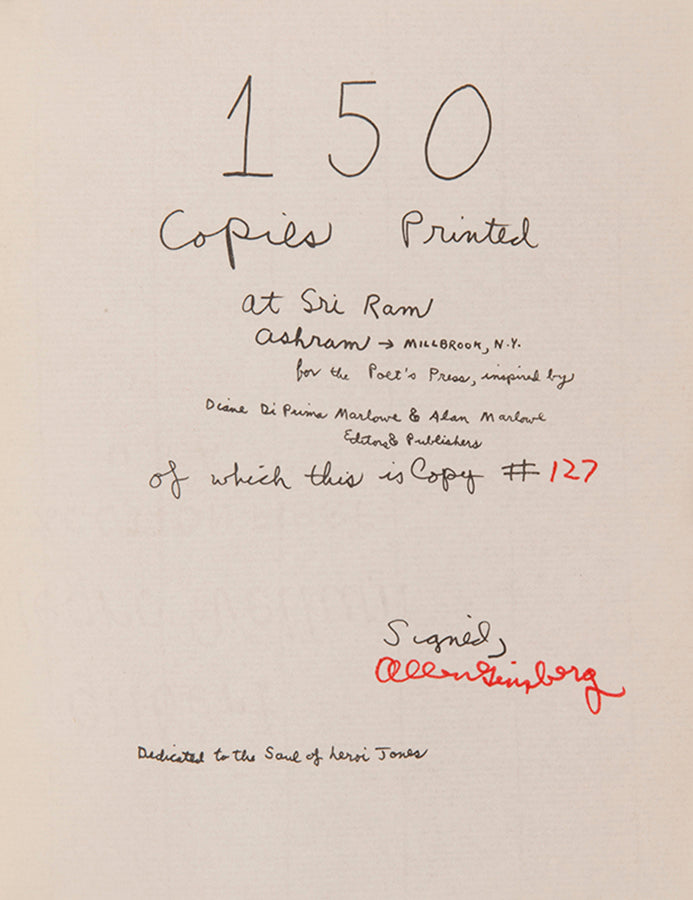 150
Copies Printed
at Sri Ram
Ashram → MILLBROOK, N.Y.
for the Poet's Press, inspired by
Diane Di Prima Marlowe & Alan Marlowe
Editors & Publishers
of which this is Copy # 127
Signed,
Allen Ginsberg
Dedicated to the Soul of Leroi Jones